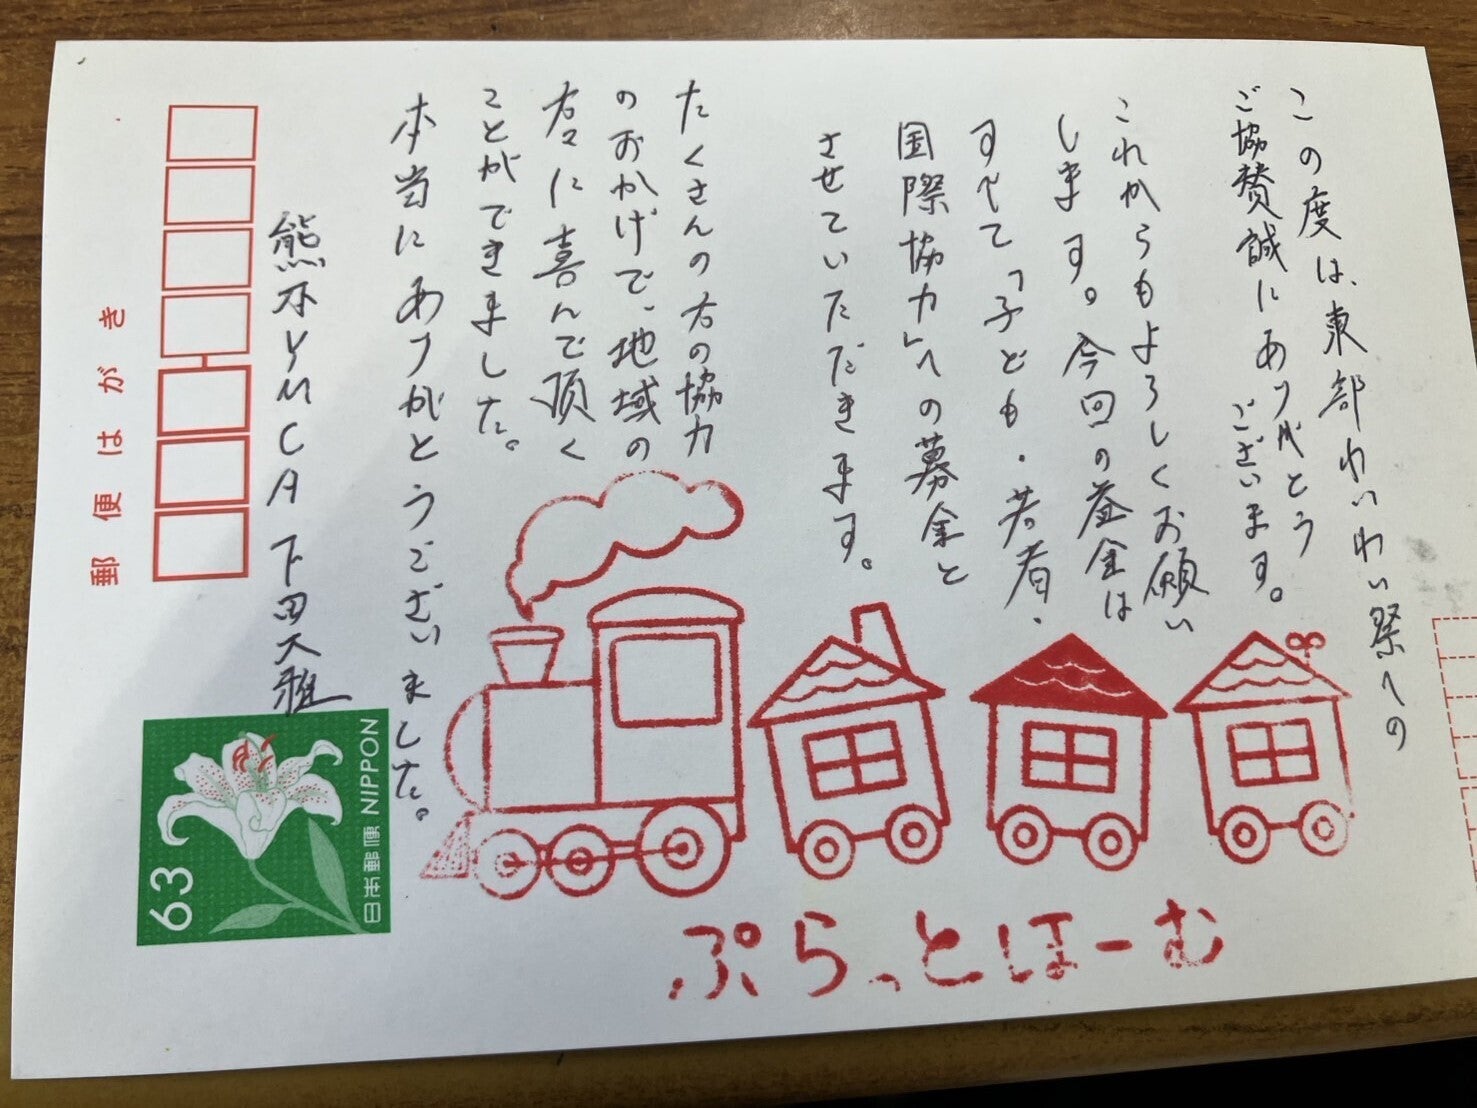 この度は、東部わいわい祭への
ご協賛誠にありがとう
ございます。
これからもよろしくお願い
します。今回の益金は
すべて「子ども・若者・
国際協力」への募金と
させていただきます。
たくさんの方の協力
のおかげで、地域の
方々に喜んで頂く
ことができました。
本当にありがとうございました。
熊本YMCA 下田大雅
郵便はがき
63
日本郵便 NIPPON
ぷらっとほーむ